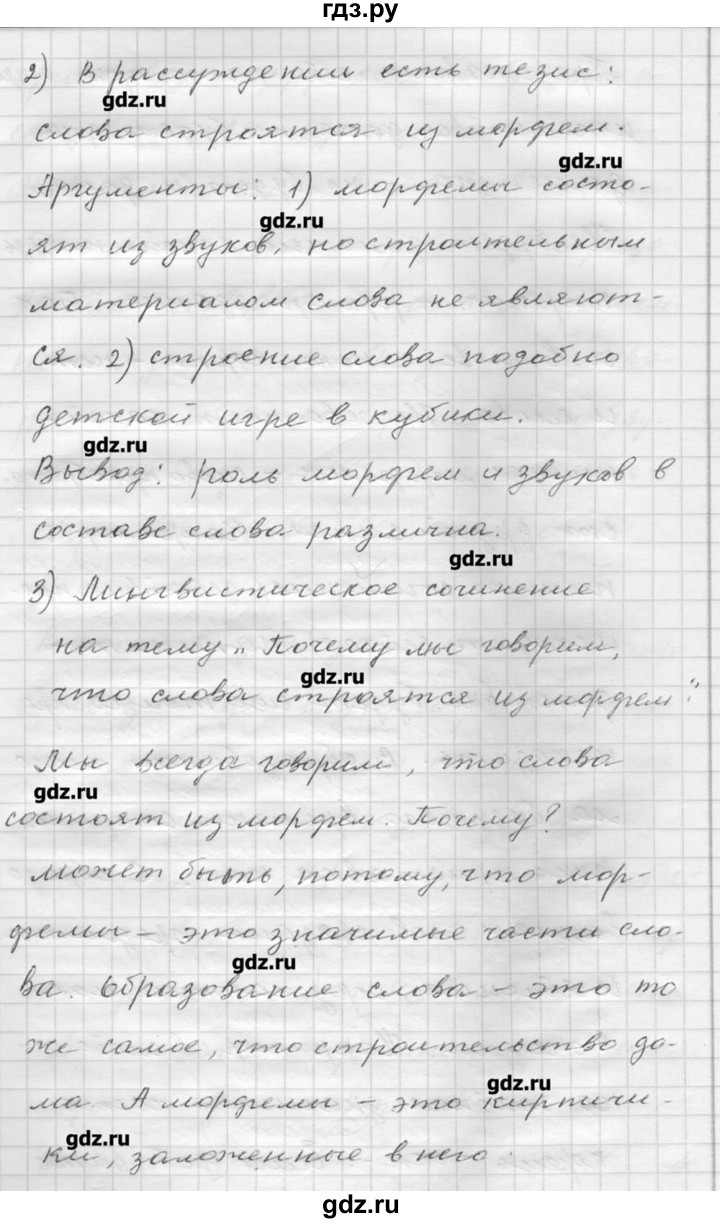 гдз.ру
2) В рассуждении есть тезис:
gdz.ru
слова строятся из морфем.
gdz.ru
Аргументы: 1) морфемы состо-
gdz.ru
ят из звуков, но строительным
материалом слова не являют-
ся. 2) строение слова подобно
детской игре в кубики.
gdz.ru
Вывод: роль морфем и звуков в
составе слова различна.
gdz.ru
3) Лингвистическое сочинение
на тему „Почему мы говорим,
gdz.ru
что слова строятся из морфем“?
Мы всегда говорим, что слова
gdz.ru
состоят из морфем. Почему?
может быть, потому, что мор-
фемы – это значимые части сло-
gdz.ru
ва. Образование слова – это то
же самое, что строительство до-
gdz.ru
ма. А морфемы – это кирпичи-
gdz.ru
ки, заложенные в него.
gdz.ru